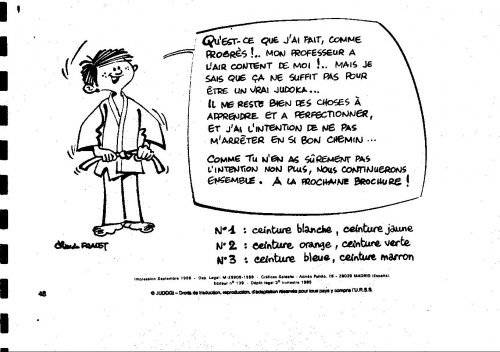 QU'EST-CE QUE J'AI FAIT, COMME
PROGRÈS !.. MON PROFESSEUR A
L'AIR CONTENT DE MOI !.. MAIS JE
SAIS QUE ÇA NE SUFFIT PAS POUR
ÊTRE UN VRAI JUDOKA...
IL ME RESTE BIEN DES CHOSES À
APPRENDRE ET A PERFECTIONNER,
ET J'AI L'INTENTION DE NE PAS
M'ARRÊTER EN SI BON CHEMIN...
COMME TU N'EN AS SÛREMENT PAS
L'INTENTION NON PLUS, NOUS CONTINUERONS
ENSEMBLE. A LA PROCHAINE BROCHURE !
N°1 : ceinture blanche, ceinture jaune
N°2 : ceinture orange, ceinture verte
N°3 : ceinture bleue, ceinture marron
Impression Septembre 1986 - Dep. Legal: M-28906-1986 - Gráficas
MADRID (España)
Editeur n° 139 - Dépôt légal 3e trimestre 1985
48
© JUDOGI - Droits de traduction, reproduction, d'adaptation réservés pour tous pays y compris l'U.R.S.S.